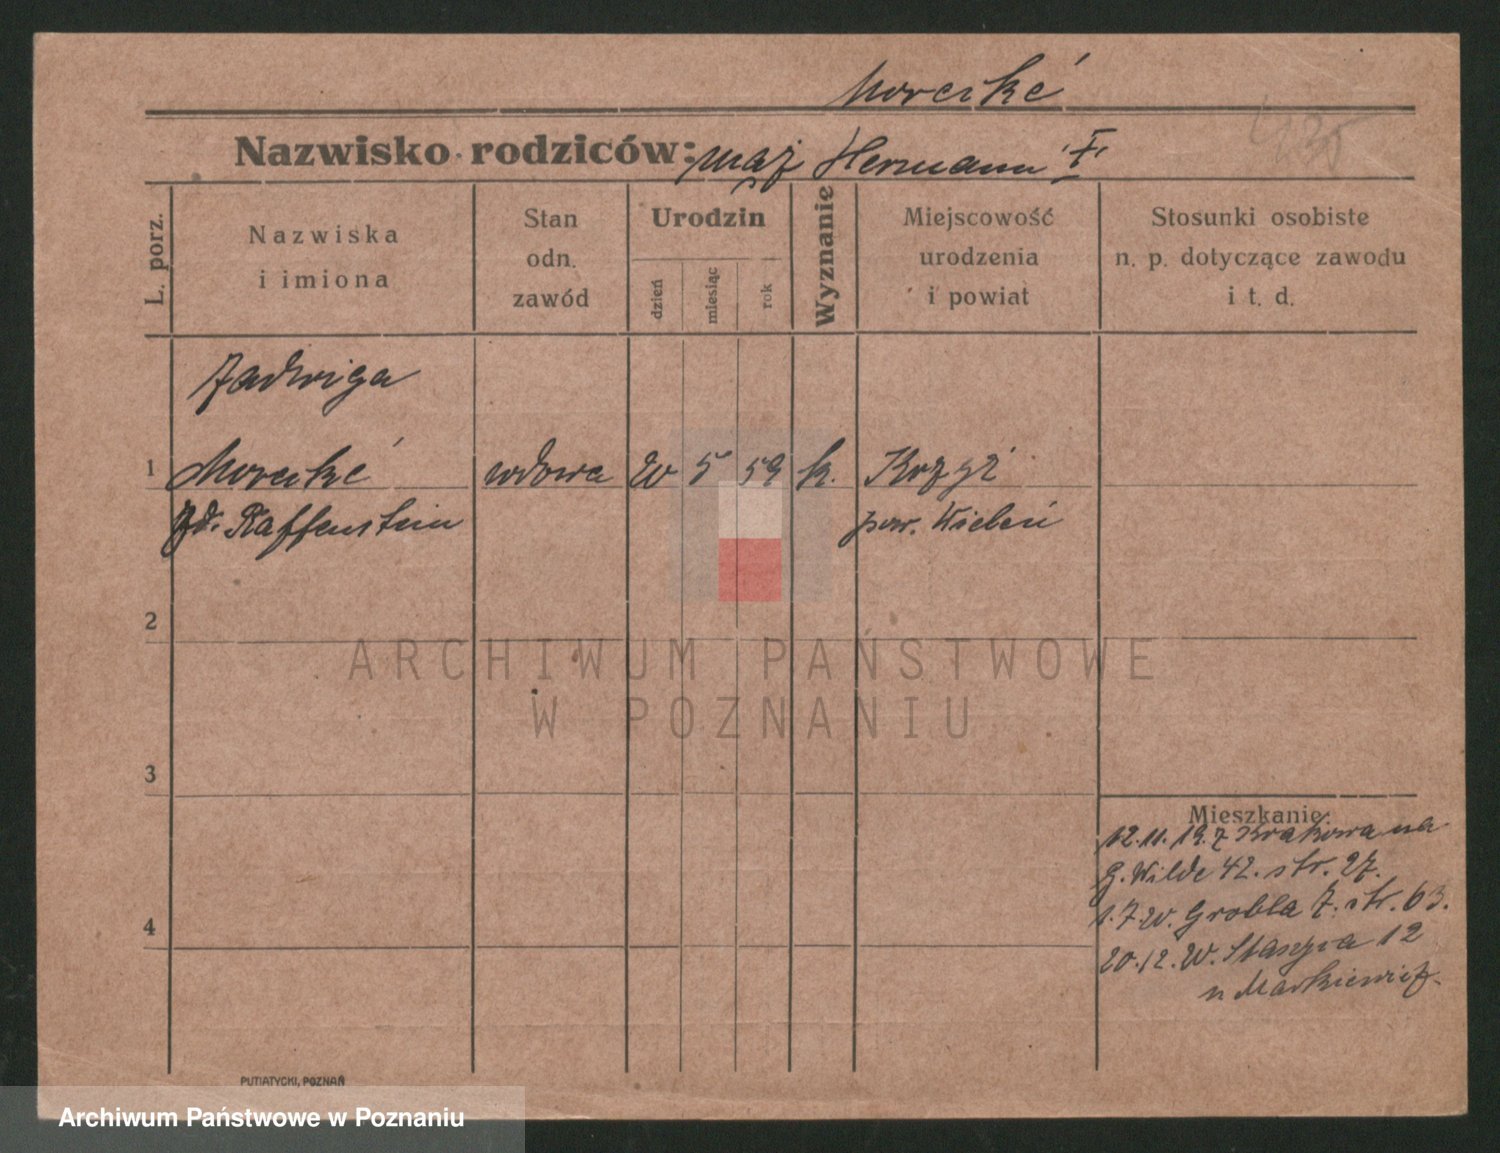 Morciké
Nazwisko rodziców: mąż Hermann †
L. porz.
Nazwiska
i imiona
Stan
odn.
zawód
Urodzin
dzień
miesiąc
rok
Wyznanie
Miejscowość
urodzenia
i powiat
Stosunki osobiste
n. p. dotyczące zawodu
i t. d.
Jadwiga
1 Morciké wdowa 20 5 59 k. Krzyż
Raffenstein pow. Wieleń
2
ARCHIWUM PAŃSTWOWE
W POZNANIU
3
Mieszkanie:
12.11.19. z Krakowa na
G. Wilde 42. str. 27.
1.7.20. Grobla 7. str. 63.
4
20.12.20. Staszyca 12
u Markiewicz.
PUTIATYCKI, POZNAŃ
Archiwum Państwowe w Poznaniu